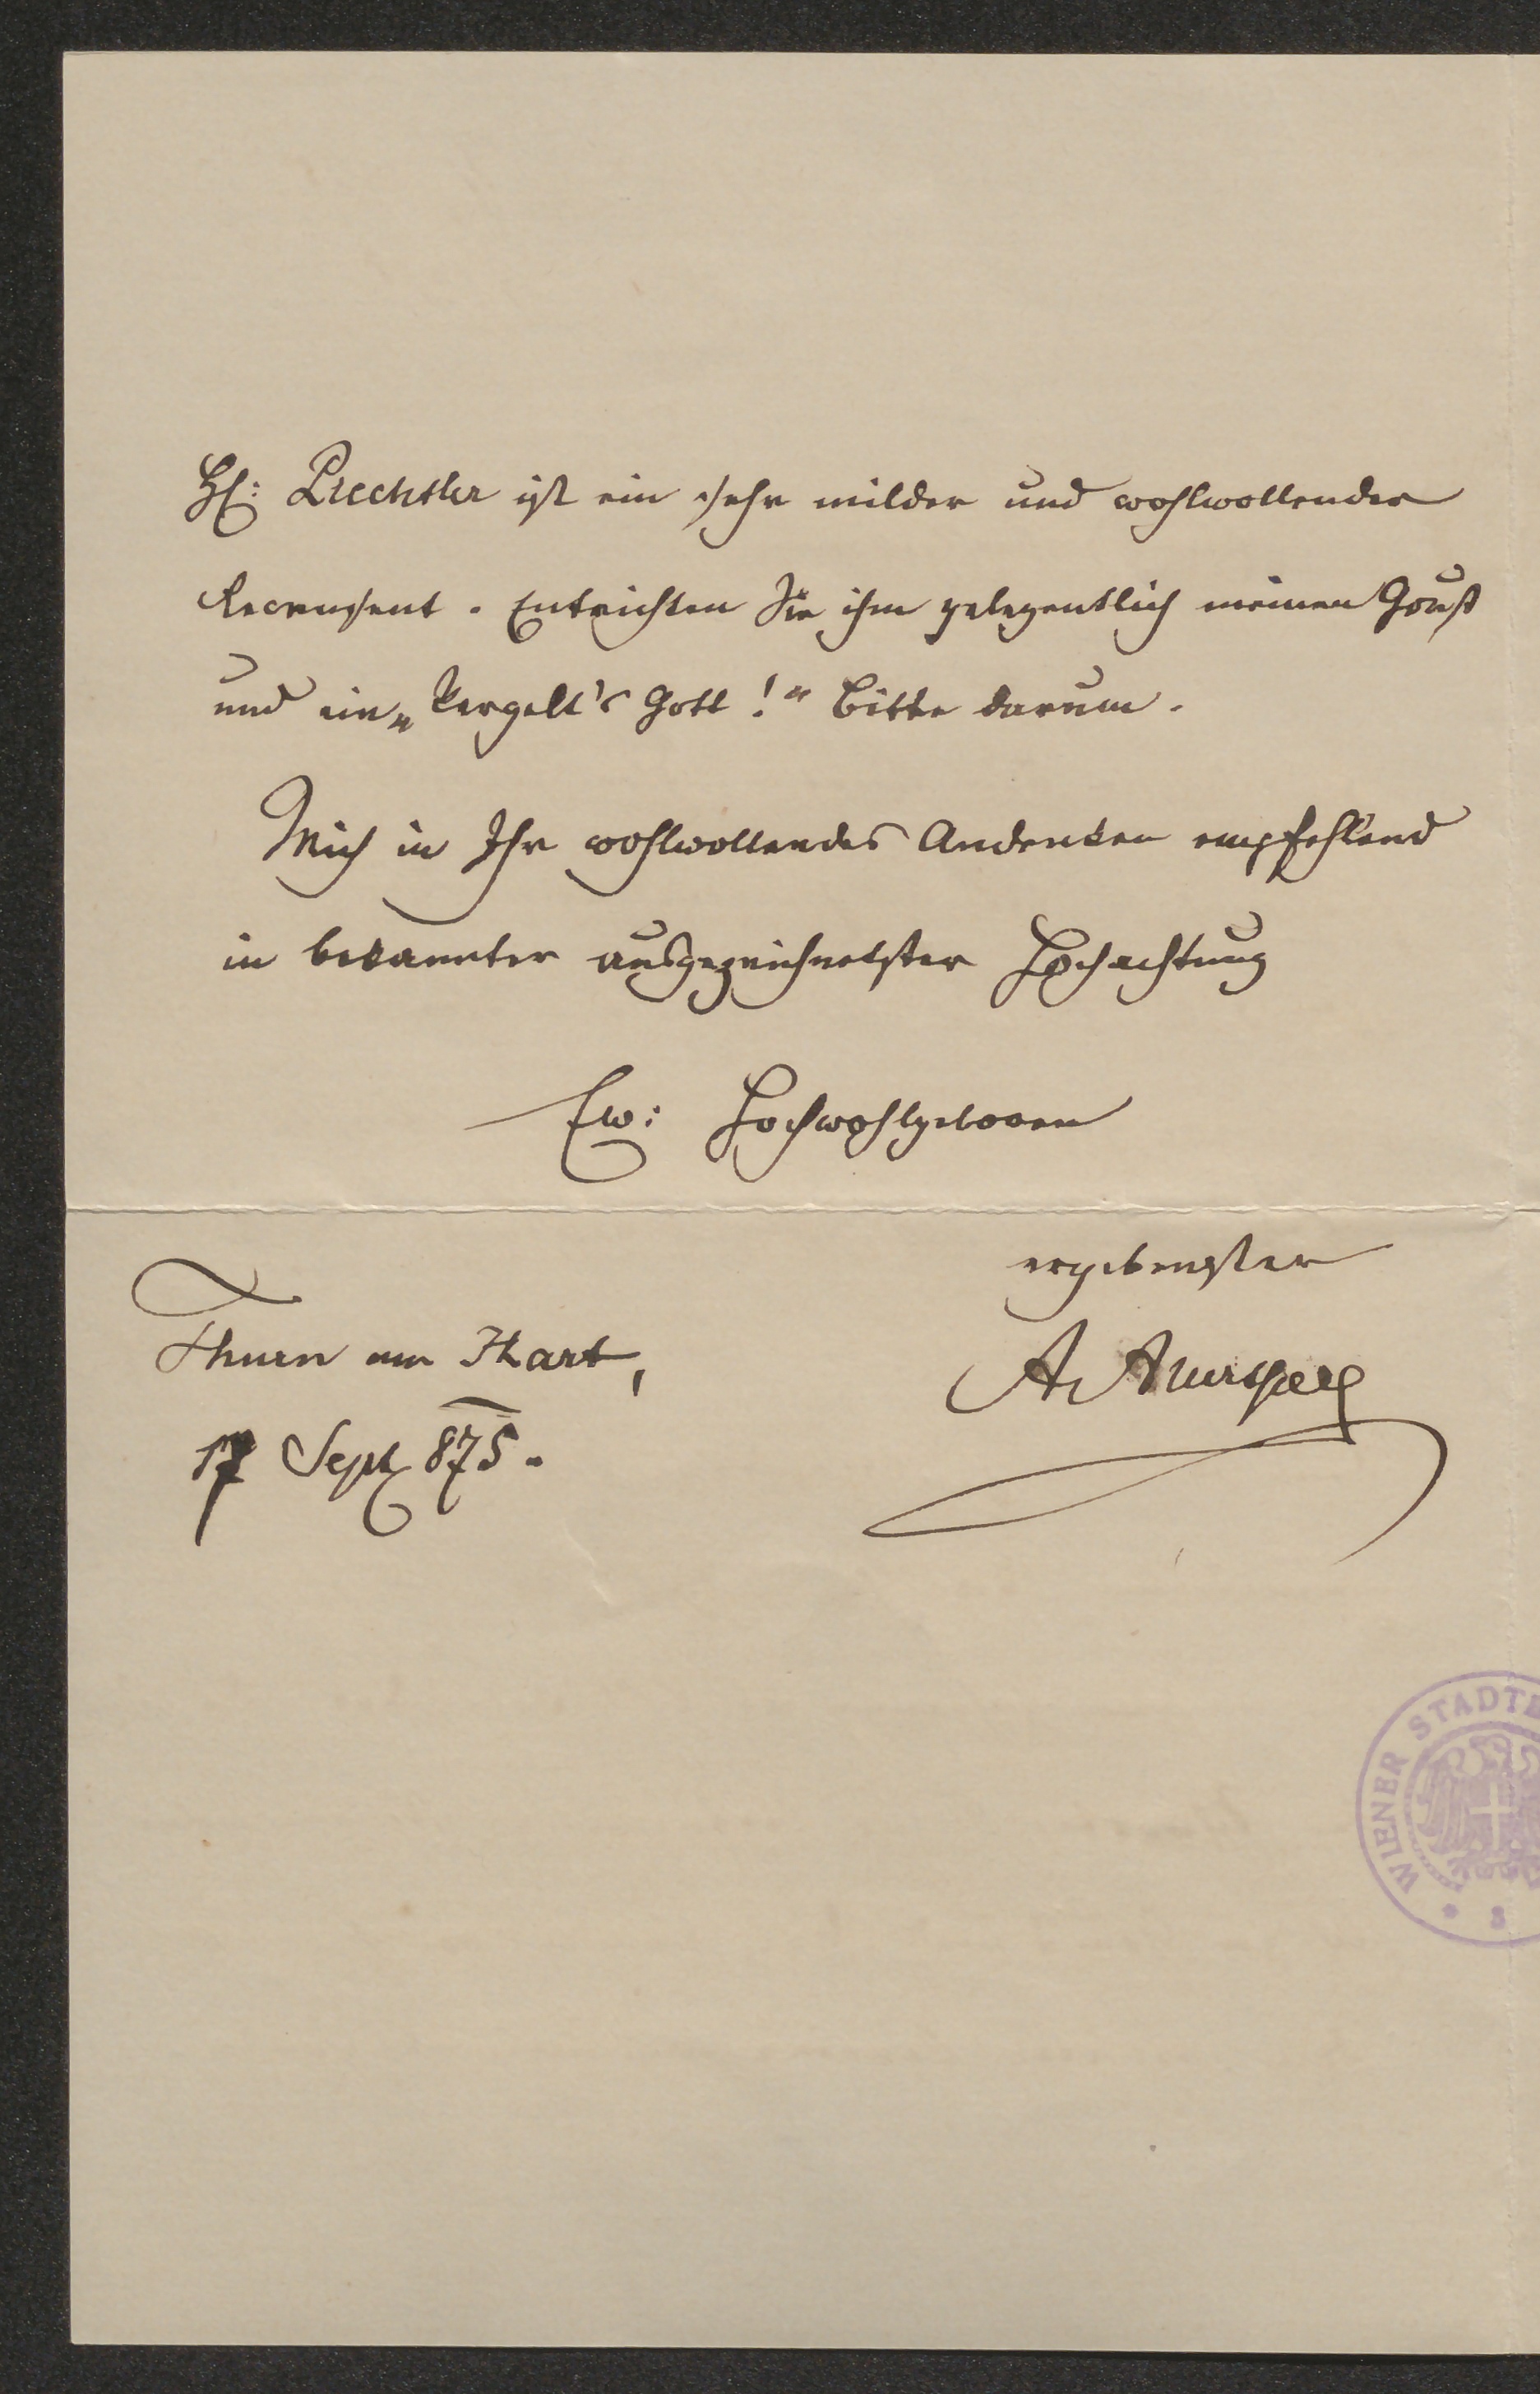 Hr: Liechtler ist ein sehr milder und wohlwollender
Recensent. Entrichten Sie ihm gelegentlich meinen Gruß
und ein „Vergelt's Gott!“ Bitte darum.
Mich in Ihr wohlwollendes Andenken empfehlend
in bekannter ausgezeichnetster Hochachtung
Ew: Hochwohlgeboren
ergebenster
Thurn am Hart,
A Auersperg
17 Sept 875.
WIENER STADTB